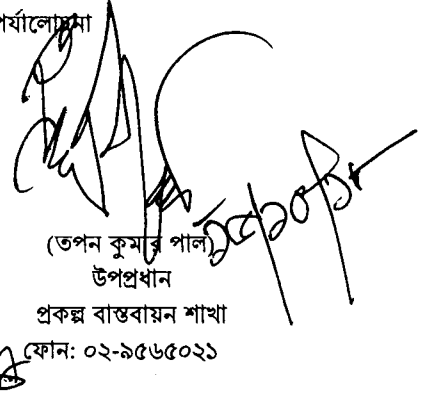 পর্যালোচনা
(তপন কুমার পাল)
উপপ্রধান
প্রকল্প বাস্তবায়ন শাখা
ফোন: ০২-৯৫৬৫০২১